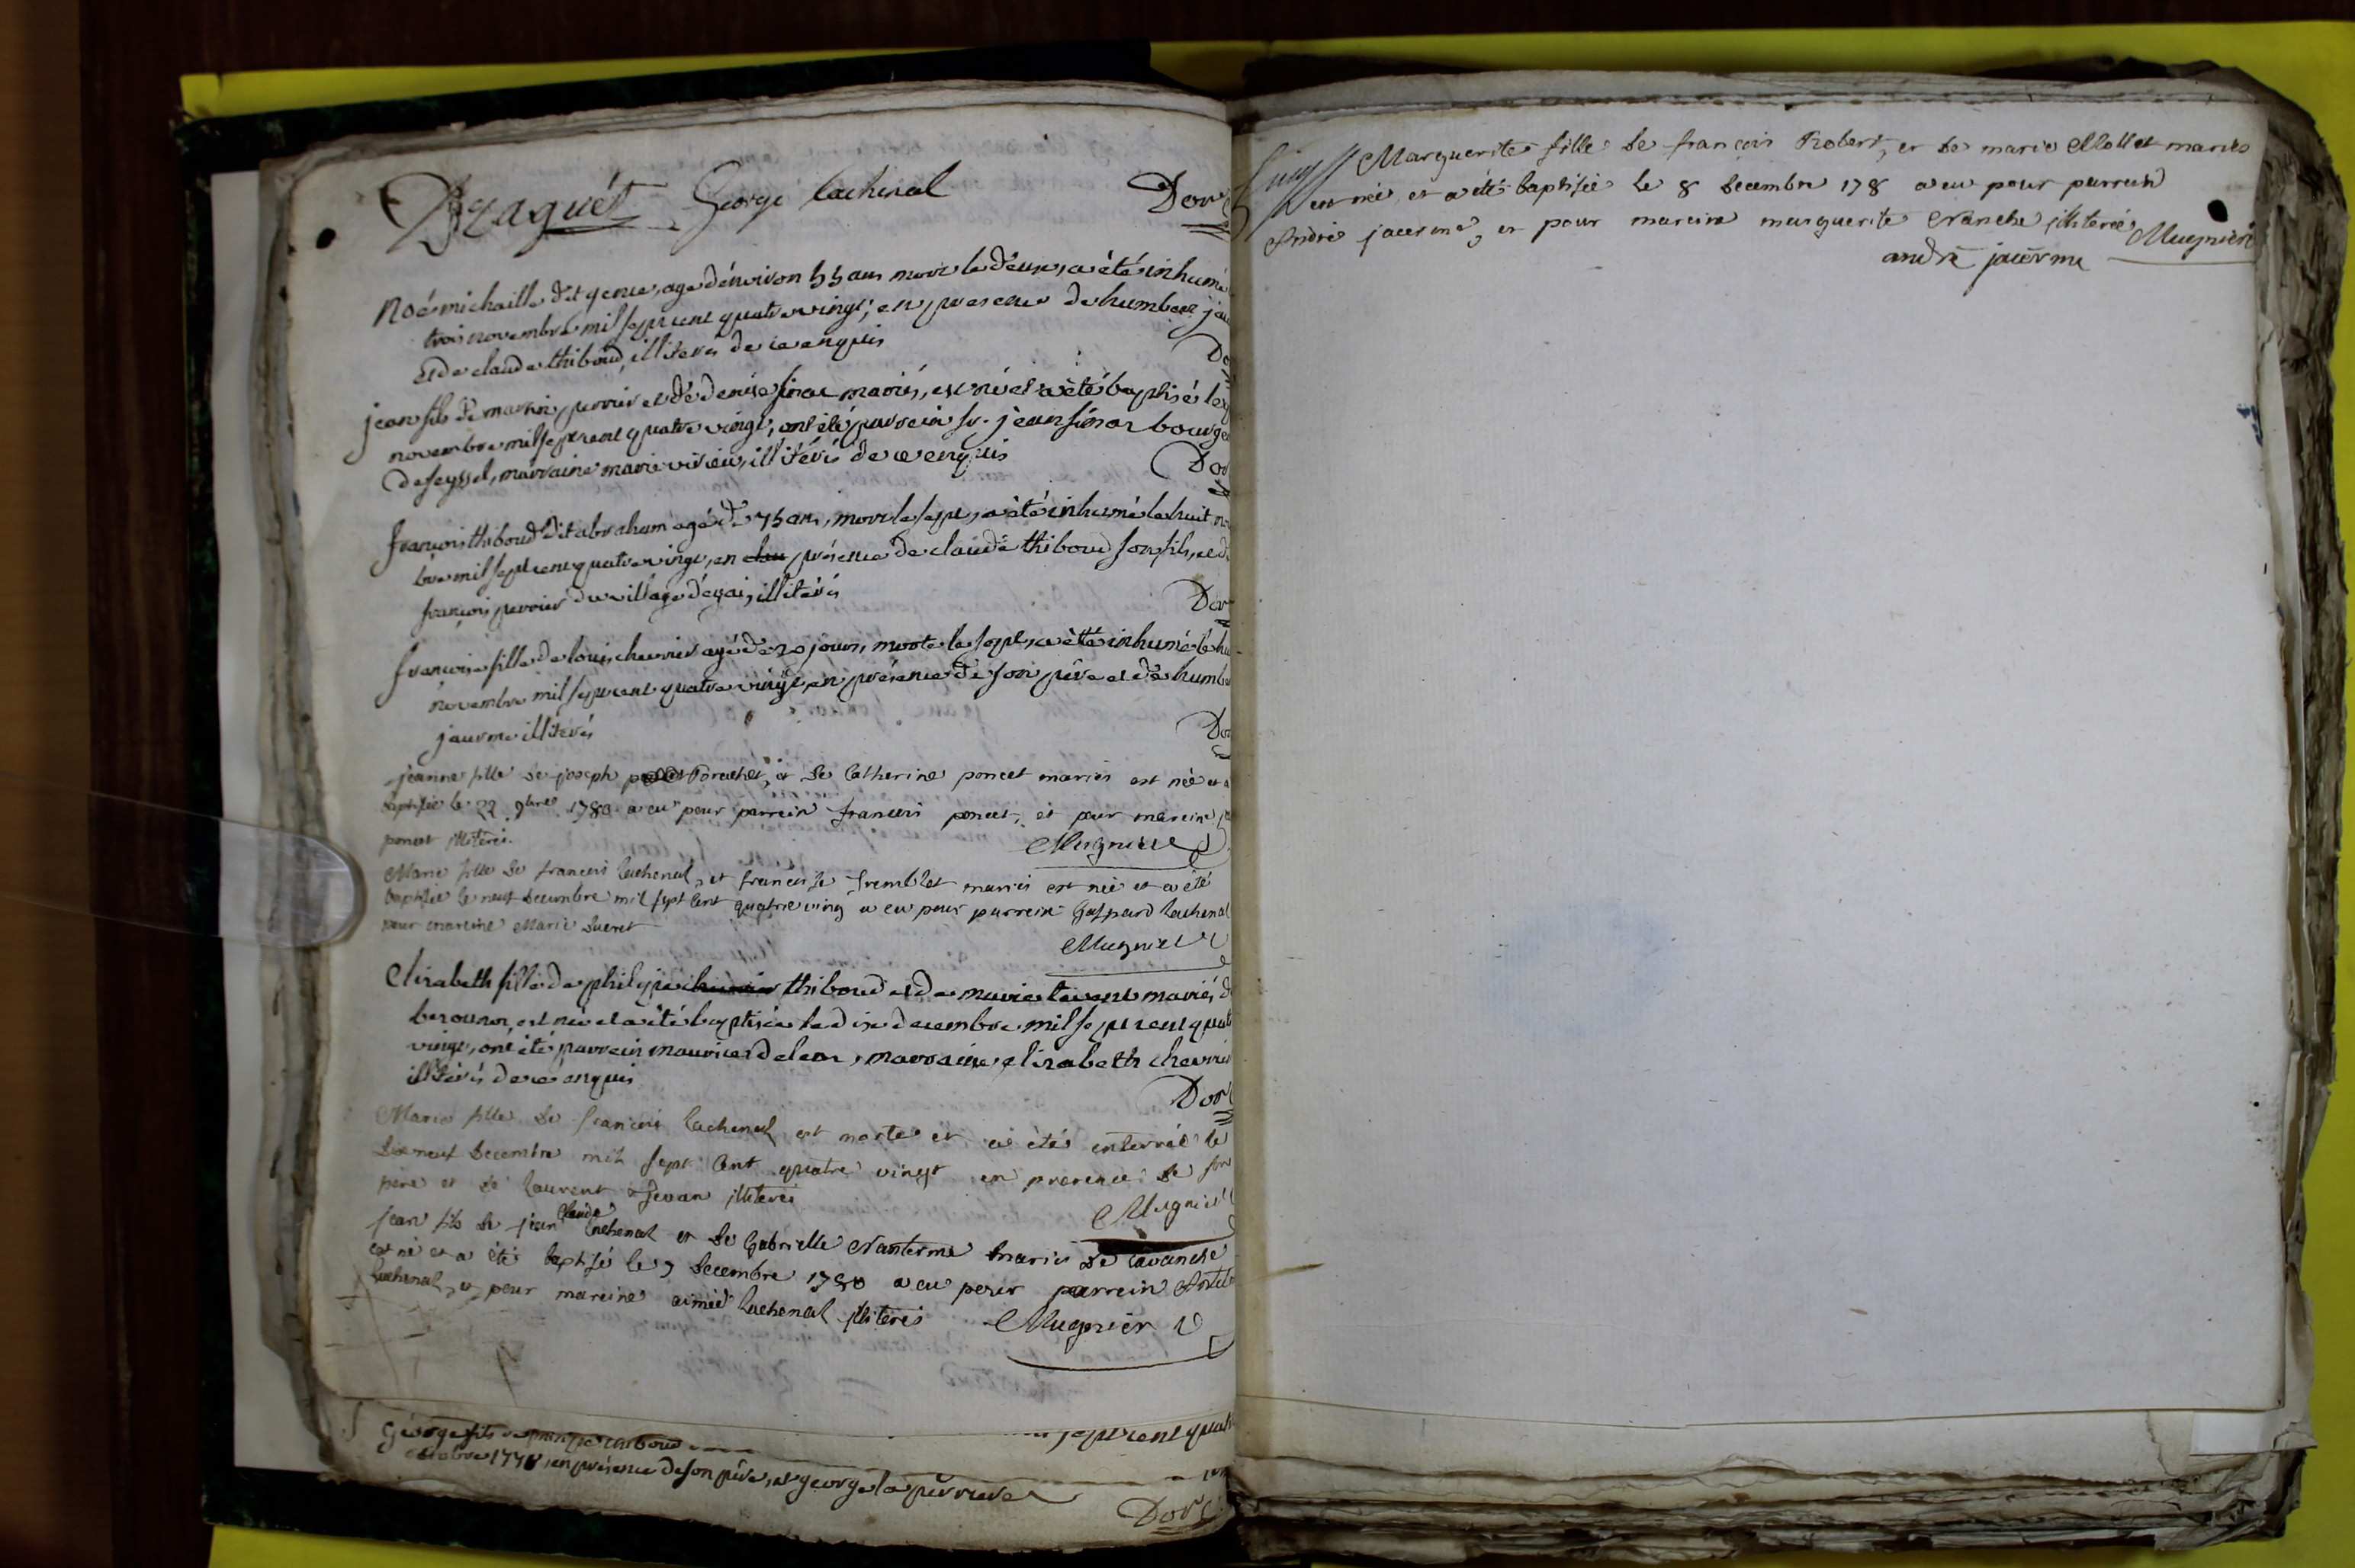 Braguét George Lachenal Dor
Noé michaille dit genne, agé d'environ 55 ans mort le deux, a été inhumé
trois novembre mil sept cent quatre vingt, en presence de humbert
et de claude thiboud, illiterés de ce enquis Do
jean fils de martin perrier et de denise sinar mariés, est né et a été baptisé le
novembre mil sept cent quatre vingt, ont été parrein sr. jean sinar bourge
de seyssel, marraine marie vivieu, illitérés de ce enquis Dor
françois thiboud dit abraham agé de 75 ans, mort le sept, a été inhumé le huit no
bre mil sept cent quatre vingt, en présence de claude thiboud son fils, et d
françois perrier du village d'ezai, illitérés Dor
françoise fille de louis chevrier agé de 20 jours, morte le sept, a été inhumé le hu
novembre mil sept cent quatre vingt, en présence de son père et de humbe
jaurme illitérés Dor
jeanne fille de joseph Porachet, et de Catherine poncet mariés est née et a
baptisée le 22 9bre 1780 a eu pour parrein francois poncet, et pour mareine
poncet illiterés. Mugnier
Marie fille de francois lachenal, et francoise tremblet mariés est née et a été
baptisée le neuf decembre mil sept cent quatre ving a eu pour parrein Gaspard lachenal
pour mareine Marie Sueret Mugnier
Elisabeth fille de philipe thiboud et de marie mariés d
est née et a été baptisée le dix decembre mil sept cent quatr
vingt, ont été parrein maurice delear, marraine elisabeth chevrier
illitérés de ce enquis Dor
Marie fille de francois lachenal est morte et a été enterrée le
dixneuf decembre mil sept Cent quatre vingt en presence de son
pere et de laurent Jevan illiterés Mugnier
jean fils de jean Claude Lachenal et de Gabrielle Nanterme mariés de lavanche
est né et a été baptisé le 9 decembre 1780 a eu pour parrein Antel
lachenal, et pour mareine aimée lachenal illiterés Mugnier
George fils de philipe thiboud sept cent quatr
octobre 1778, en présence de son père, et george la perriere
Dor
Marguerite fille de francois Robert, et de marie Mollet mariés
est née et a été baptisée le 8 decembre 178 a eu pour parrein
André jacerme, et pour mareine marguerite Nanche illiterée Mugnier
andré jacerme